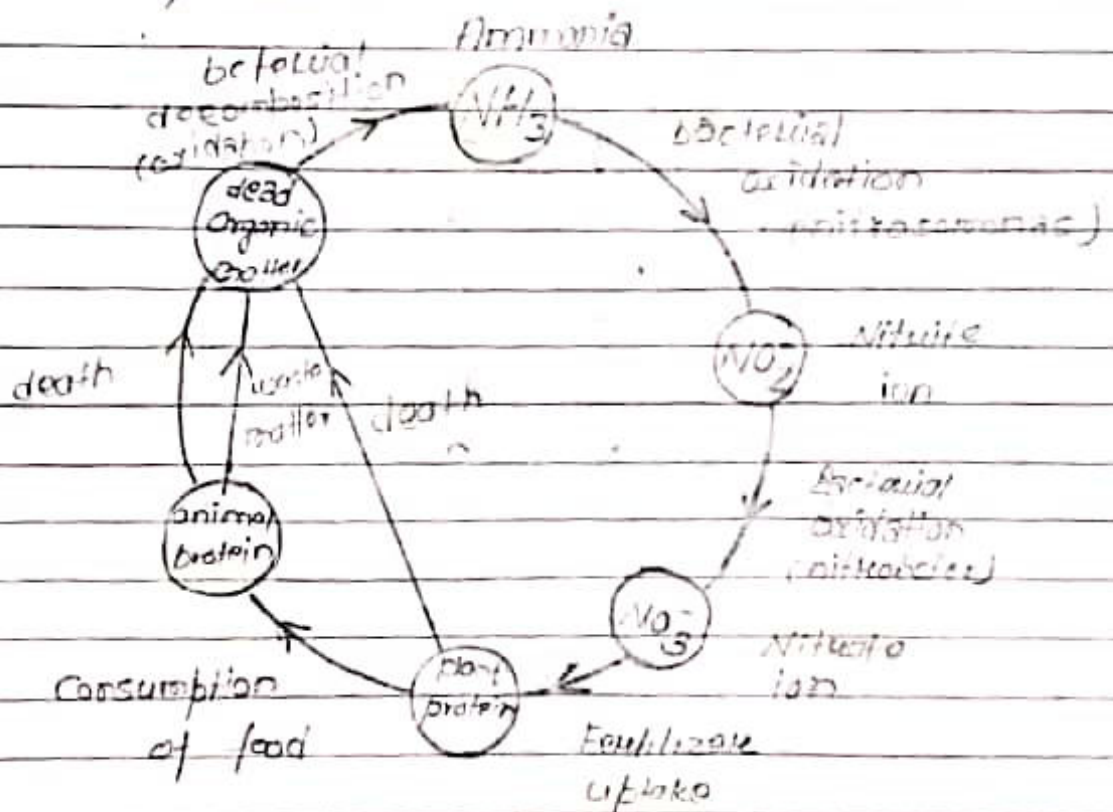 Ammonia
NH3
bacterial
decomposition
(oxidation)
bacterial
oxidation
(nitrosomonas)
dead
organic
matter
NO2-
Nitrite
ion
death
waste
matter
death
Bacterial
oxidation
(nitrobacter)
animal
protein
NO3-
Nitrate
ion
plant
protein
Consumption
of food
Fertilizer
uptake